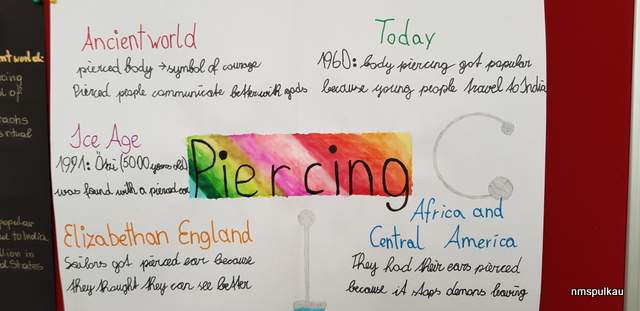 Ancient world
pierced body → symbol of courage
Pierced people communicate better with gods
Today
1960: body piercing got popular
because young people travel to India
Ice Age
1991: Ötzi (5000 years old)
was found with a pierced ear
Piercing
Elizabethan England
Sailors got pierced ear because
they thaught they can see better
Africa and
Central America
They had their ears pierced
because it stops demons leaving
nmspulkau